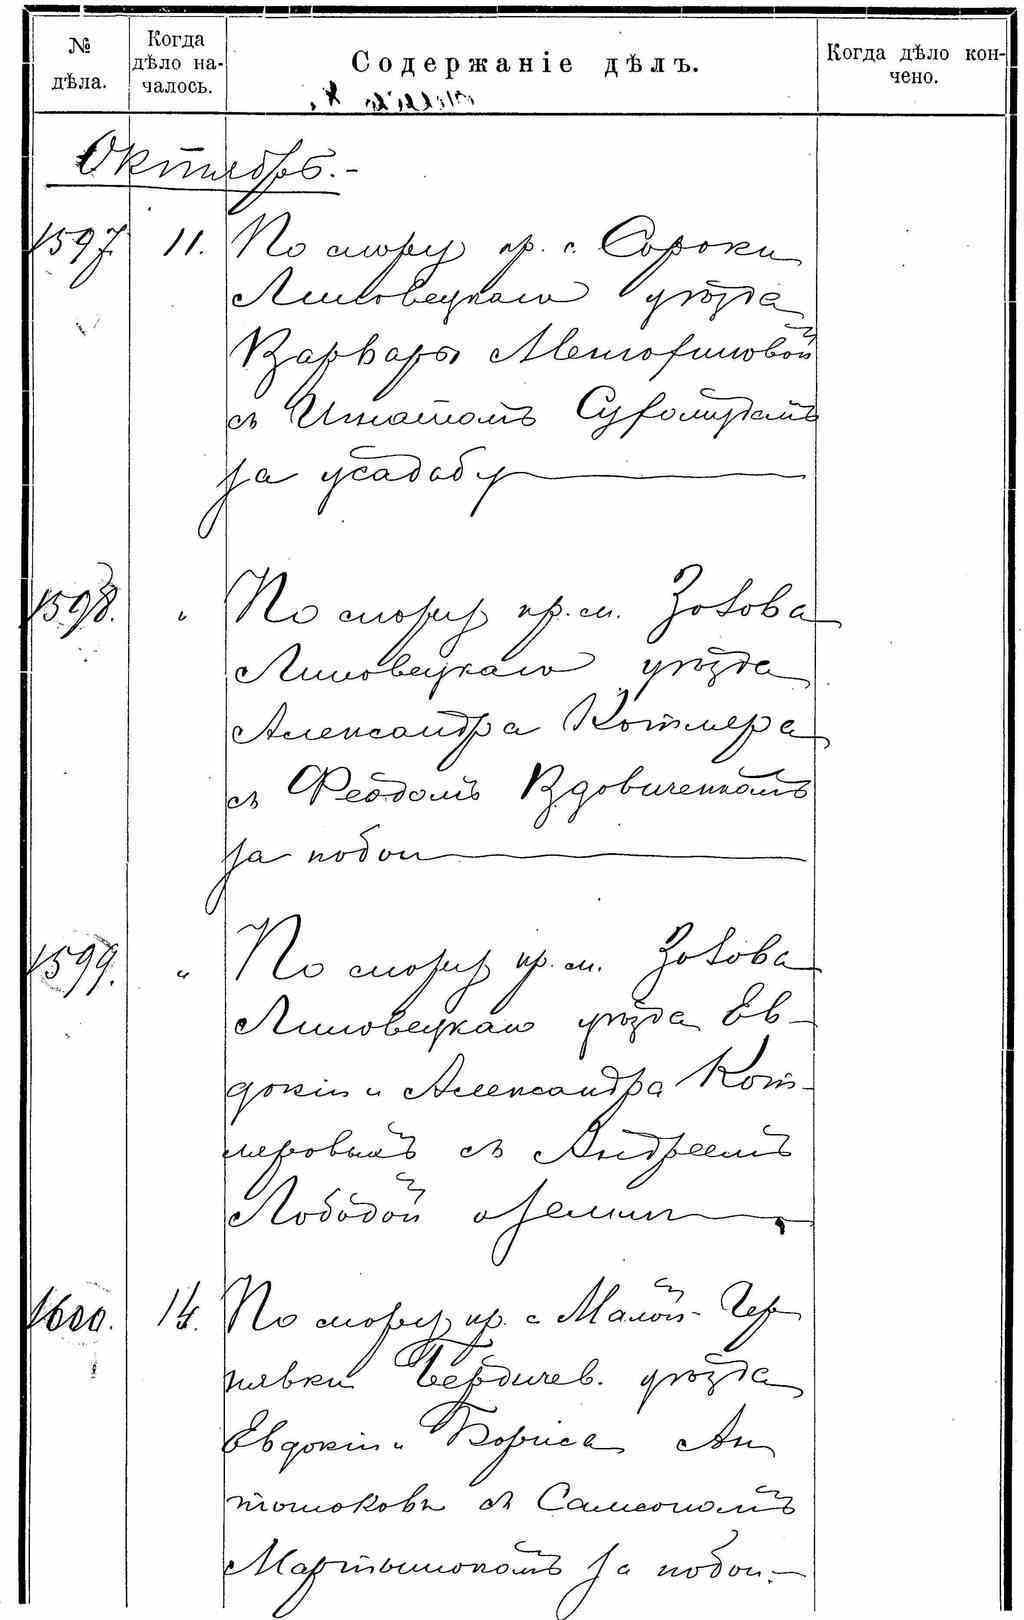 № дѣла.
Когда дѣло началось.
Содержаніе дѣлъ.
Когда дѣло кончено.
Октябрь.-
1597. 11. По спору кр. с. Сороки
Липовецкаго уѣзда
Варвары
съ Игнатомъ
за усадьбу
1598. " По спору кр. м. Зозова
Липовецкаго уѣзда
Александра Котлера
съ Феодомъ Вдовиченкомъ
за побои
1599. " По спору кр. м. Зозова
Липовецкаго уѣзда Ев-
докіи и Александра Кот-
леровыхъ съ Андреемъ
Лободой о земли
1600. 14. По спору кр. с Малой-Чер
нявки Бердичев. уѣзда
Евдокіи и Бориса Ан
тоноковъ съ Самсономъ
Мартынюкомъ за побои.-